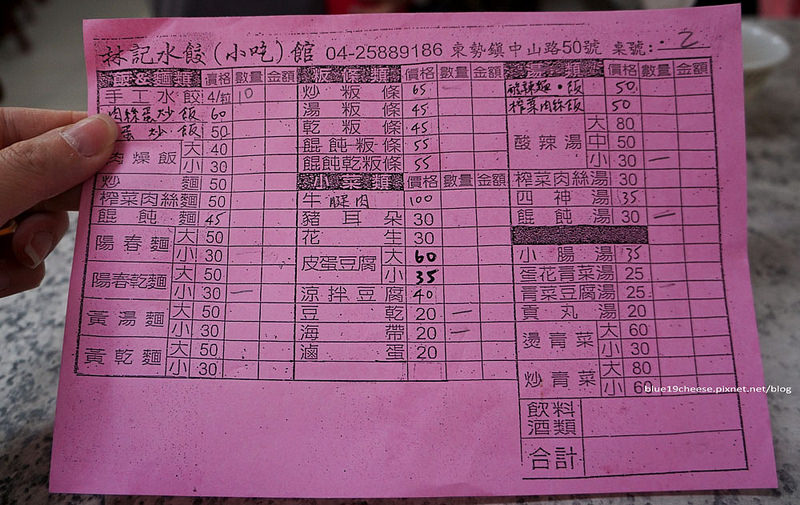 林記水餃(小吃)館 04-25889186 東勢鎮中山路50號 桌號: 2
飯&麵類 價格 數量 金額
手工水餃 4/粒 10
肉絲蛋炒飯 60
蛋炒飯 50
肉燥飯 大 40
小 30
炒麵 50
榨菜肉絲麵 50
餛飩麵 45
陽春麵 大 50
小 30
陽春乾麵 大 50
小 30 一
黃湯麵 大 50
小 30
黃乾麵 大 50
小 30
粄條類 價格 數量 金額
炒粄條 65 一
湯粄條 45
乾粄條 45
餛飩粄條 55
餛飩乾粄條 55
小菜類 價格 數量 金額
牛腱肉 100
豬耳朵 30
花生 30
皮蛋豆腐 大 60
小 35
涼拌豆腐 40
豆乾 20 一
海帶 20 一
滷蛋 20
價格 數量 金額
酸辣麵·飯 50
榨菜肉絲飯 50
酸辣湯 大 80
中 50
小 30 一
榨菜肉絲湯 30
四神湯 35
餛飩湯 30 一
小腸湯 35
蛋花青菜湯 25
青菜豆腐湯 25
貢丸湯 20
燙青菜 大 60
小 30
炒青菜 大 80
小 60
飲料
酒類
合計
blue19cheese.pixnet.net/blog